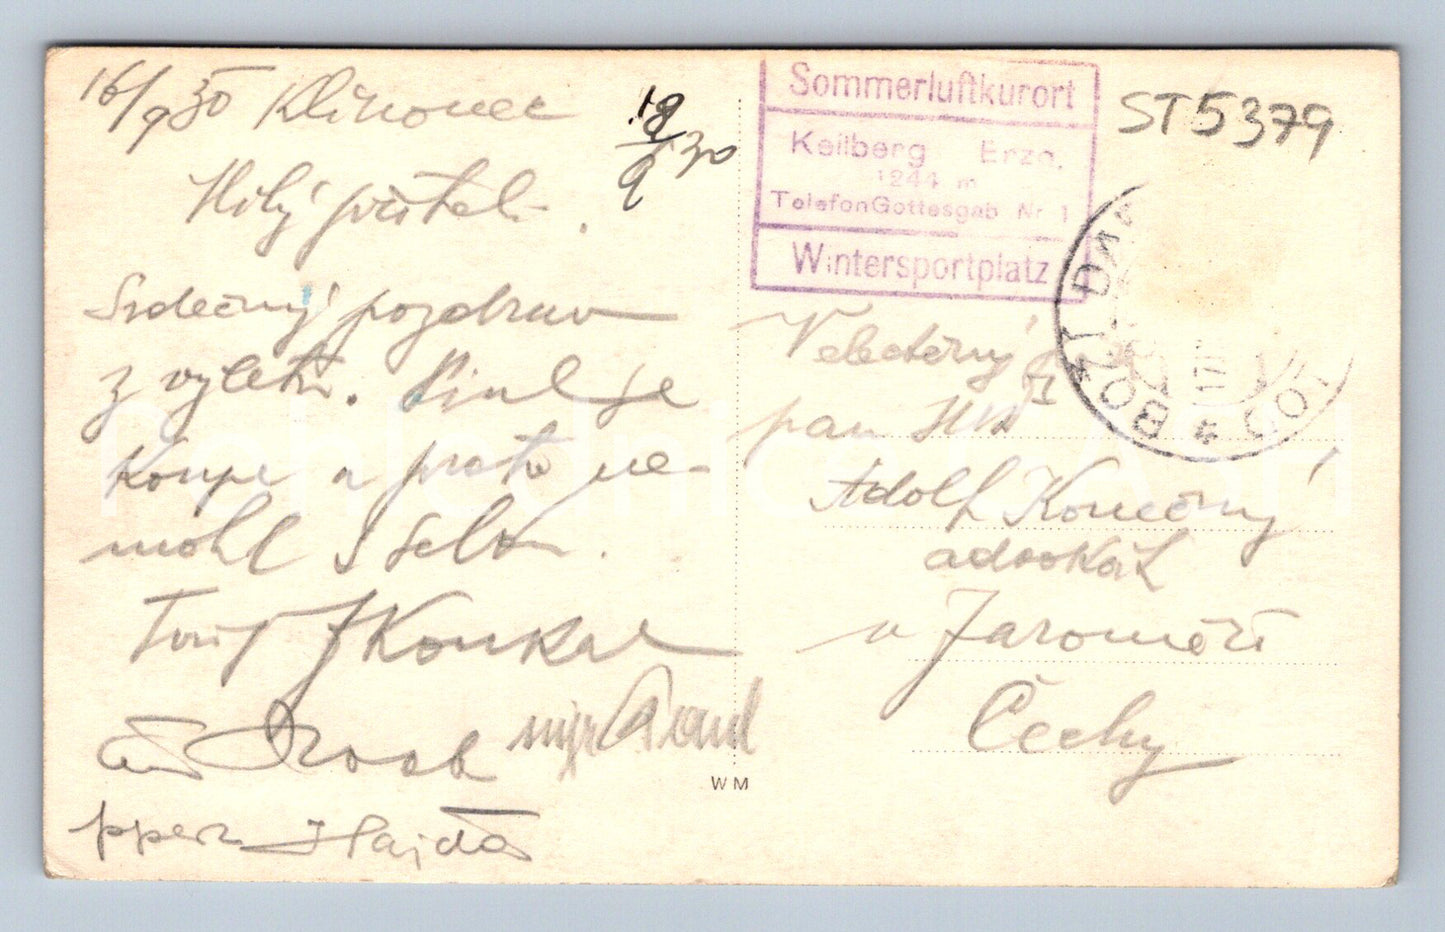 16/9 30 Klínovec
18/9 30
Milý příteli.
Srdečný pozdrav
z výletu. Páni se
koupe a proto ne-
mohl s sebou.
Tvůj JKoukal
mjr
Hajda
WM
Sommerluftkurort
Keilberg Erzg.
1244 m
Telefon Gottesgab Nr 1
Wintersportplatz
ST5379
BOŽÍ DAR
GOT
17
Velectěný
pan JUDr
Adolf Konečný
advokát
v Jaroměři
Čechy
Pohlednice SASH